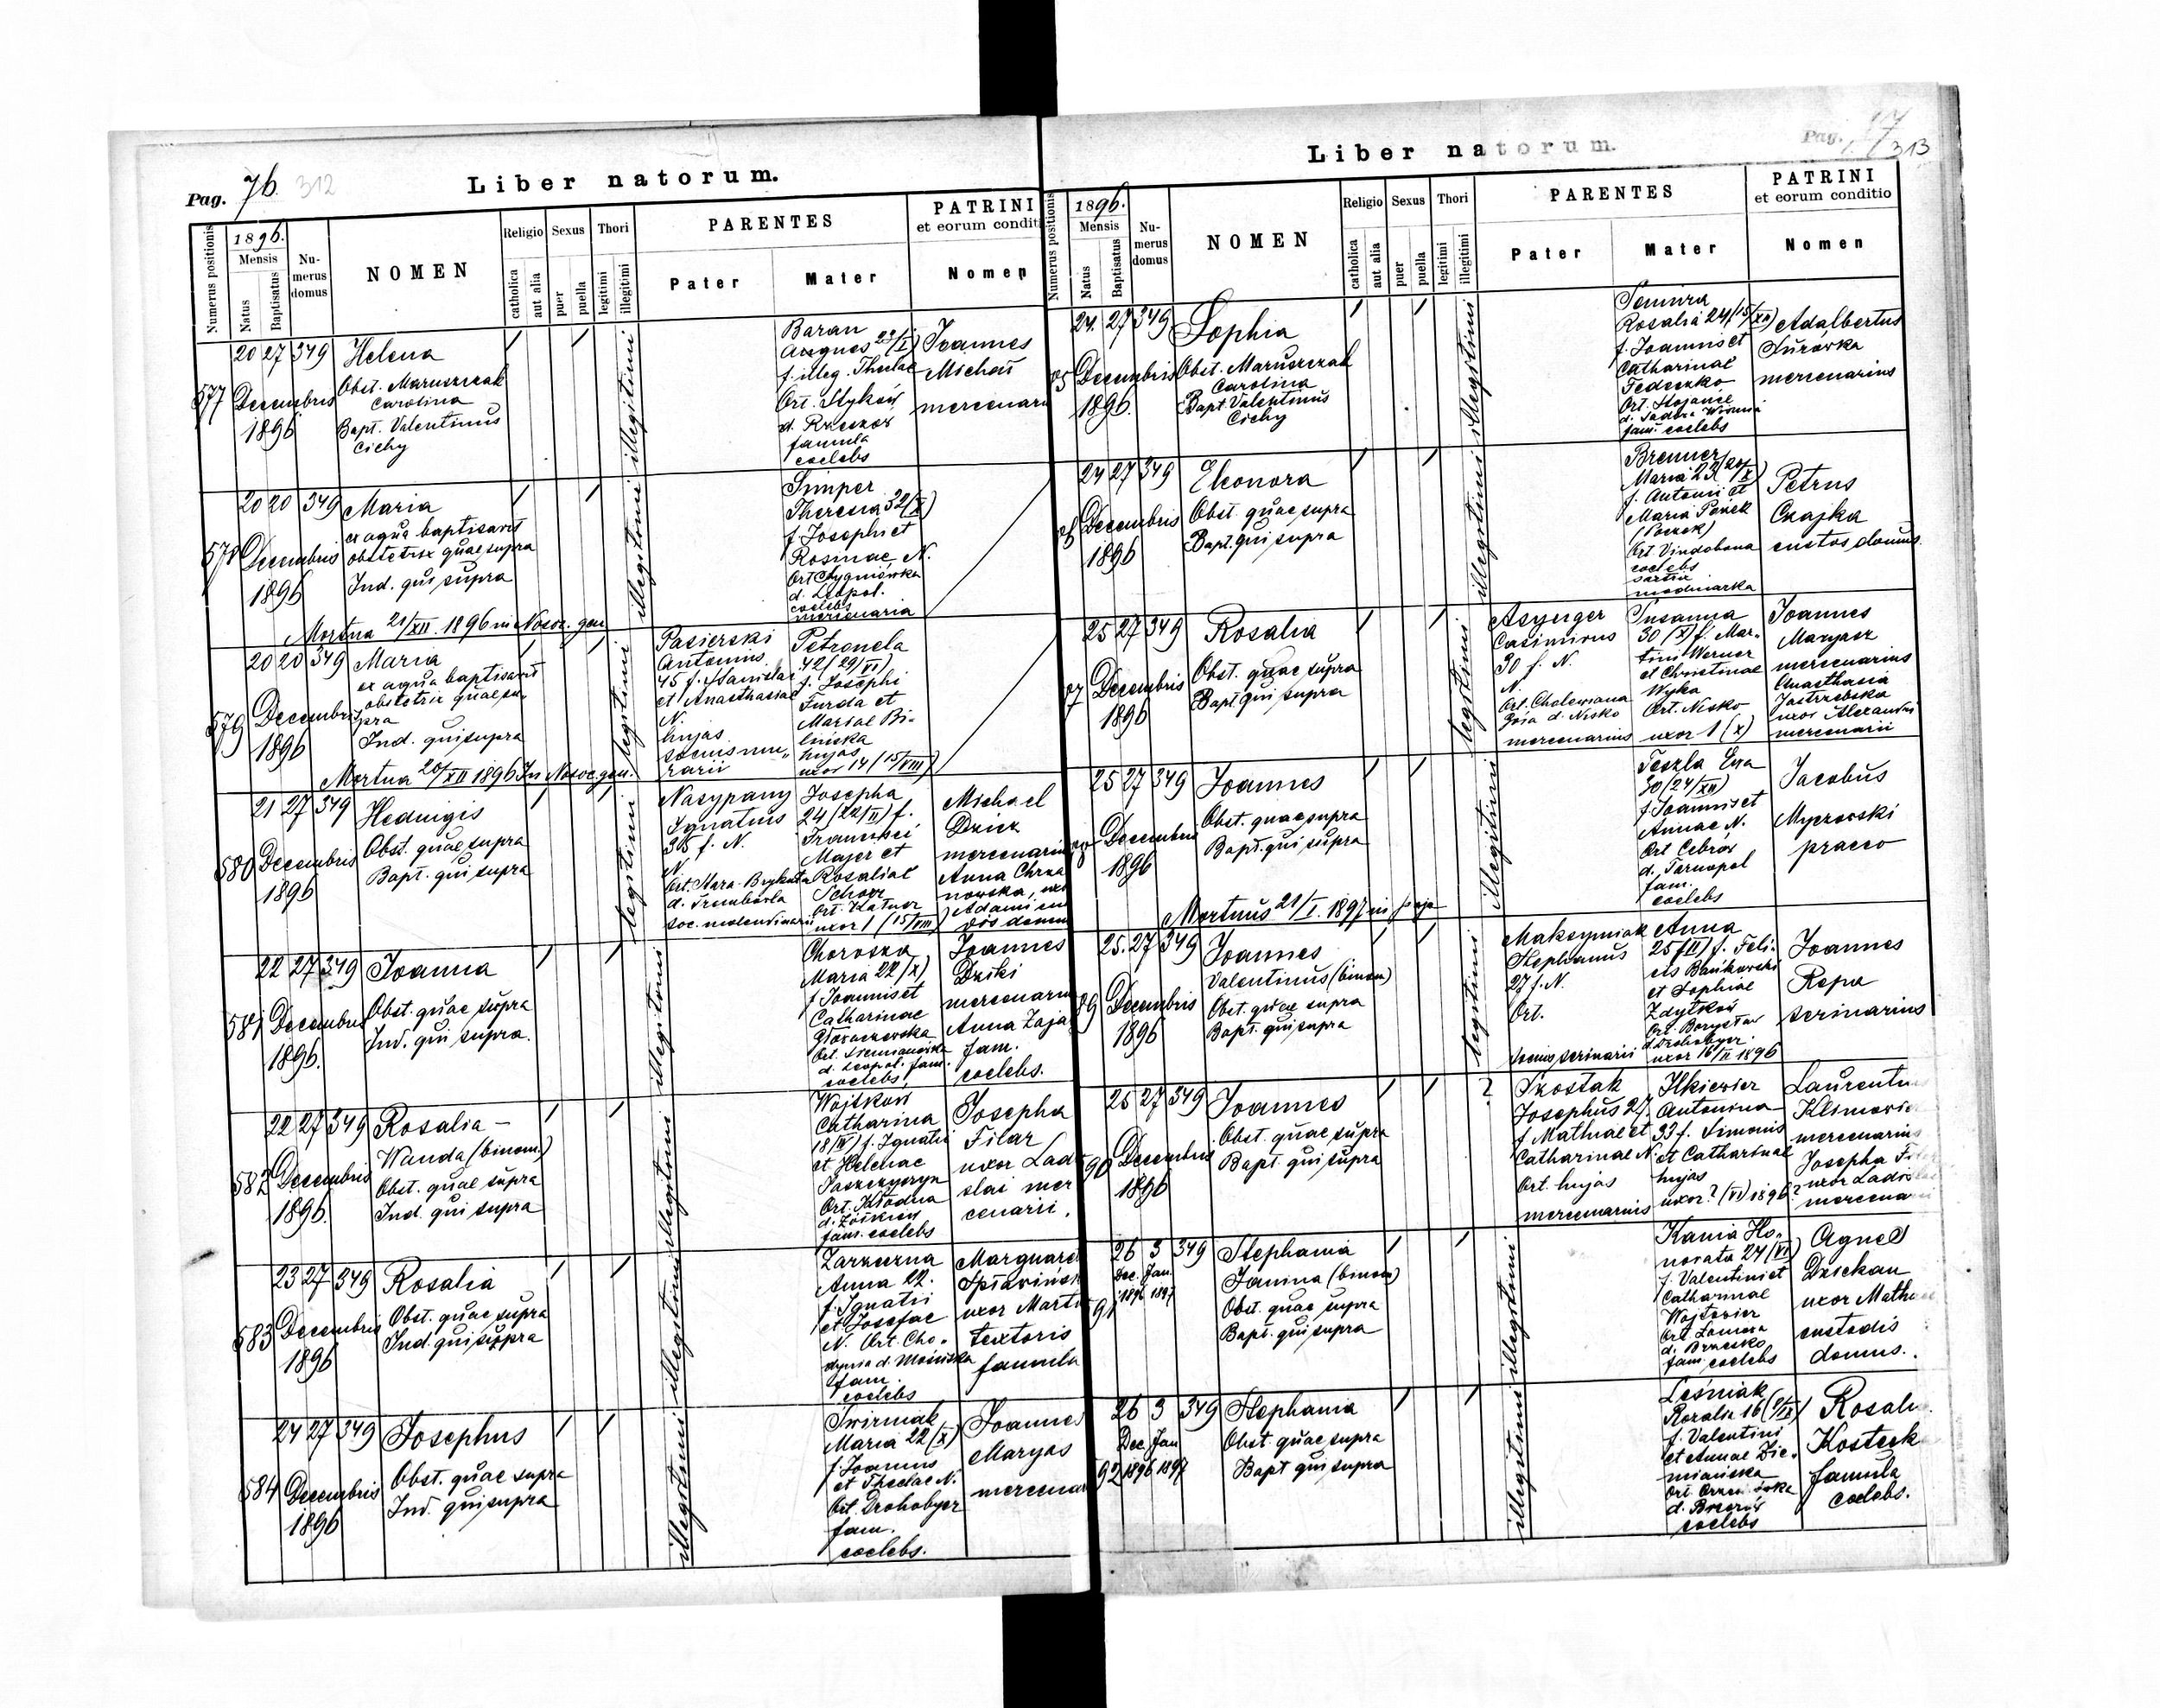 Pag. 76. 312
Liber natorum.
Numerus positionis
1896.
Mensis
Natus
Baptisatus
Nu-
merus
domus
NOMEN
Religio
catholica
aut alia
Sexus
puer
puella
Thori
legitimi
illegitimi
PARENTES
Pater
Mater
PATRINI
et eorum condit
Nomen
577
20 27 349
Decembris
1896
Helena
Obst. Maruszczak
Carolina
Bapt. Valentinus
Cichy
illegitimi
Baran
Agnes 23/I)
f. illeg. Theclae
Ort. Stykow
d. Rzeszow
famula
coelebs
Joannes
Michaś
mercenari
578
20 20 349
Decembris
1896
Maria
ex aqua baptisavit
obstetrix quae supra
Ind. qui supra
Mortua 21/XII. 1896 in Nosoc. gen
illegitimi
Simper
Theresia 32/X)
f. Josephi et
Rosinae N.
d. Leopol.
coelebs
mercenaria
579
20 20 349
Decembris
1896
Maria
ex aqua baptisavit
obstetrix quae su-
pra
Ind. qui supra
Mortua 20/XII 1896 In Nosoc gen.
legitimi
Pasierski
Antonius
45 f. Stanislai
et Anasthasiae
N.
hujas
Petronela
42/29/VI)
f. Josephi
Furda et
Mariae Bi-
lińska
hujas
uxor 14 (15/VIII)
580
21 27 349
Decembris
1896
Hedwigis
Obst. quae supra
Bapt. qui supra
legitimi
Nasypany
Ignatius
35 f. N.
N.
d. Trembowla
soc. molendinarii
Josepha
24/22/II) f.
Francisci
Majer et
Rosaliae
uxor 1 (15/VIII)
Michael
Dzier
mercenarius
Anna Chrza
nowska, uxo
Adami cu
581
22 27 349
Decembris
1896.
Joanna
Obst. quae supra
Ind. qui supra.
illegitimi
Choroszka
Maria 22/X)
f Joannis et
Catharinae
d. Leopol. fam.
coelebs.
Joannes
Dziki
mercenarius
Anna Zaja
fam.
coelebs.
582
22 27 349
Decembris
1896.
Rosalia -
Wanda (binom.)
Obst. quae supra
Ind. qui supra
illegitimi
Wojtkow
Catharina
18/IV) f. Ignatii
et Helenae
Ort. Kłodna
d. Żółkiew
fam. coelebs
Josepha
Filar
uxor Lad
slai mer
cenarii.
583
23 27 349
Decembris
1896
Rosalia
Obst. quae supra
Ind. qui supra
illegitimi
Zarzeczna
Anna 22.
f. Ignatii
et Josefae
N. Ort. Cho-
dynia d. Mościska
fam.
coelebs
Marguare
Spławińsk
uxor Marti
textoris
famula
584
24 27 349
Decembris
1896
Josephus
Obst. quae supra
Ind. qui supra
illegitimi
Swirniak
Maria 22/X)
f. Joannis
et Theclae N.
Ort. Drohobycz
fam.
coelebs.
Joannes
Maryas
mercenar
Liber natorum.
Pag. 313
Numerus positionis
1896.
Mensis
Natus
Baptisatus
Nu-
merus
domus
NOMEN
Religio
catholica
aut alia
Sexus
puer
puella
Thori
legitimi
illegitimi
PARENTES
Pater
Mater
PATRINI
et eorum conditio
Nomen
85
24. 27 349
Decembris
1896.
Sophia
Obst. Maruszczak
Carolina
Bapt. Valentinus
Cichy
illegitimi
Rosalia 24/15/XII)
f. Joannis et
Catharinae
Fedeczko
Ort. Stojańce
d. Sadowa Wisznia
fam. coelebs
Adalbertus
Surowka
mercenarius
86
24 27 349
Decembris
1896
Eleonora
Obst. quae supra
Bapt. qui supra
illegitimi
Brenner
Maria 23
f. Antonii et
Maria
Ort. Vindobona
coelebs
Petrus
Czajka
custos domus.
87
25 27 349
Decembris
1896
Rosalia
Obst. quae supra
Bapt. qui supra
legitimi
Asynger
Casimirus
30 f. N.
N.
Ort. Cholewiana
Góra d. Nisko
mercenarius
Susanna
30/X) f. Mar-
tini Werner
et Christinae
Wyka
Ort. Nisko
uxor 1 (X)
Joannes
Maryasz
mercenarius
Anasthasia
Jastrzebska
uxor Alexandri
mercenarii
25 27 349
Decembris
1896
Joannes
Obst. quae supra
Bapt. qui supra
Mortuus 21/I. 1897 in
illegitimi
Teszla Eva
30/24/XII)
f. Joannis et
Annae N.
Ort Cebrów
d. Tarnopol
fam.
coelebs
Jacobus
Myczowski
praeco
89
25. 27 349
Decembris
1896
Joannes
Valentinus (binom)
Obst. quae supra
Bapt. qui supra
legitimi
Maksymiak
Stephanus
27 f. N.
Ort.
Socius scrinarii
Anna
25/II) f. Feli-
cis Bańkowski
et Sophiae
Zdytkow
Ort. Borysław
d. Drohobycz.
uxor 16/II 1896
Joannes
Repa
scrinarius
90
25 27 349
Decembris
1896
Joannes
Obst. quae supra
Bapt. qui supra
?
Szostak
Josephus 27.
f. Mathiae et
Catharinae N.
Ort. hujas
mercenarius
Ilkiewicz
Antonina
33 f. Simonis
et Catharinae
hujas
uxor? (VI) 1896?
Laurentiu
Klimowic
mercenarius
Josepha Fil
uxor Ladisl
mercenarii
91
26 3 349
Dec. Jan.
1896 1897
Stephania
Janina (binom)
Obst. quae supra
Bapt. qui supra
illegitimi
Kania Ho-
norata 24/VI)
f. Valentini et
Catharinae
Wojtowicz
d. Brzesko
fam. coelebs
Agnes
Dziekan
uxor Mathiae
custodis
domus.
92
26 3 349
Dec Jan
1896 1897
Stephania
Obst. quae supra
Bapt qui supra
illegitimi
Leśniak
Rozalia 16 (9/IX)
f. Valentini
et Annae Zie-
miańska
d. Brzozów
coelebs
Rosali
Kosteck
famula
coelebs.